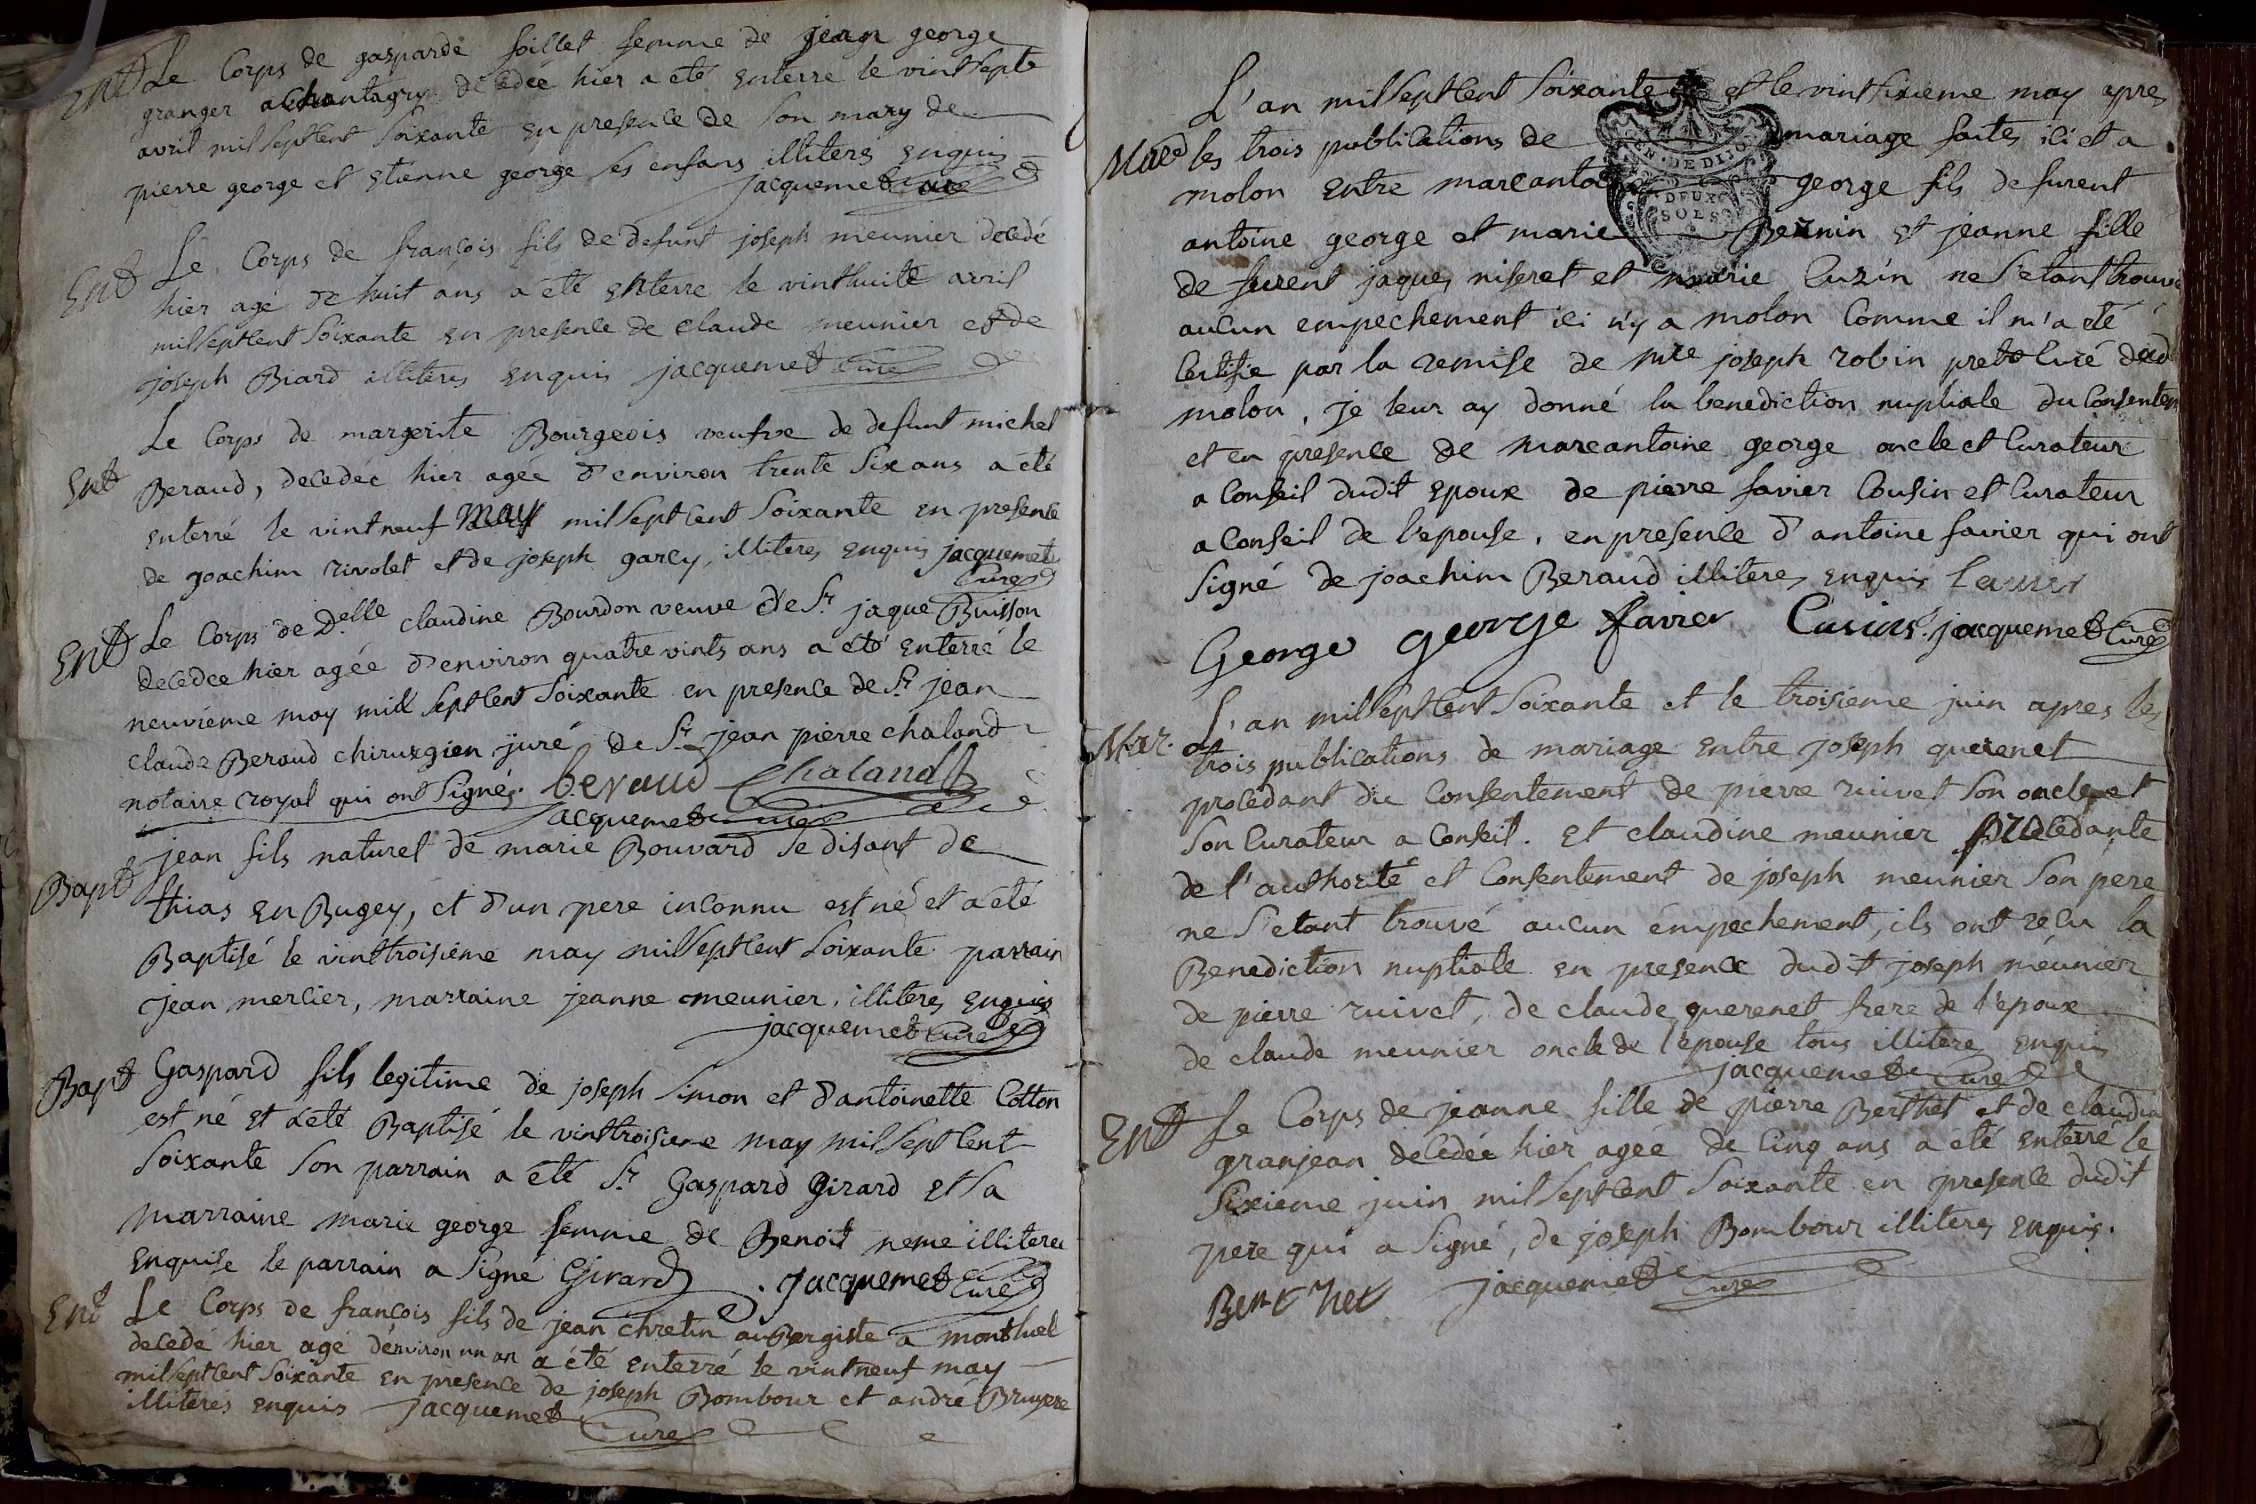 Ent Le Corps de gasparde soillet femme de jean george
granger a decedée hier a eté enterre le vintsepte
avril milseptcent soixante en presence de son mary de
pierre george et etienne george ses enfans illiteres enquis
jacquemet curé
Ent Le Corps de françois fils de defunt joseph meunier decedé
hier agé de huit ans a eté enterre le vinthuite avril
milseptcent soixante en presence de claude meunier et de
joseph Biard illiteres enquis jacquemet curé
Le Corps de margerite Bourgeois veufve de defunt michel
Ent Beraud, decedée hier agée d'environ trente six ans a été
enterré le vintneuf may milseptcent soixante en presence
de joachim rivolet et de joseph garcy, illiteres enquis jacquemet
curé
Ent Le Corps de Delle claudine Bourdon veuve de Sr jaque Buisson
decedée hier agée d'environ quatrevints ans a été enterré le
neuvieme may mill septcent soixante en presence de Sr jean
claude Beraud chirurgien juré de Sr jean pierre chaland
notaire royal qui ont signés. beraud Chaland
jacquemet curé
jean fils naturel de marie Bouvard se disant de
Bapt thias en Bugey, et d'un pere inconnu est né et a eté
Baptisé le vinttroisieme may milseptcent soixante parrain
jean mercier, marraine jeanne meunier, illiteres enquis
jacquemet curé
Bapt Gaspard fils legitime de joseph simon et d'antoinette Cotton
est né et a eté Baptisé le vinttroisieme may milseptcent
soixante son parrain a été Sr Gaspard Girard et sa
marraine marie george femme de Benoit neme illiteree
enquise le parrain a signé Girard. jacquemet curé
Ent Le Corps de françois fils de jean chretin aubergiste a montluel
decedé hier agé d'environ un an a été enterré le vintneuf may
milseptcent soixante en presence de joseph Bombour et andré Bruyere
illiteres enquis jacquemet
Curé
L'an milseptcent soixante et le vintsixieme may apres
Mar les trois publications de mariage faites ici et a
EN · DE DIJO
molon entre marcantoine george fils defurent
DEUX
SOLS
antoine george et marie Bernin et jeanne fille
de furent jaques niseret et marie Cuzin ne s'etant trouvé
aucun empechement ici n'y a molon comme il m'a eté
certifie par la remise de Mre joseph robin pretre curé dud
molon, je leur ay donné la benediction nuptiale du consentem
et en presence de marcantoine george oncle et curateur
a conseil dudit epoux de pierre favier cousin et curateur
a conseil de l'epouse, en presence d'antoine favier qui ont
signé de joachim Beraud illiteres enquis
George george favier jacquemet curé
L'an milseptcent soixante et le troisieme juin apres les
Mar. trois publications de mariage entre joseph querenet
procedant du consentement de pierre ruivet son oncle et
son curateur a conseil. et claudine meunier procedante
de l'authorité et consentement de joseph meunier son pere
ne s'etant trouvé aucun empechement, ils ont recu la
Benediction nuptiale en presence dudit joseph meunier
de pierre ruivet, de claude querenet frere de l'epoux
de claude meunier oncle de l'epouse tous illitere enquis
jacquemet curé
Ent Le Corps de jeanne fille de pierre Berthet et de claudia
granjean decedée hier agée de cinq ans a été enterré le
sixieme juin milseptcent soixante en presence dudit
pere qui a signé, de joseph Bombour illiteres enquis.
Berthet jacquemet curé